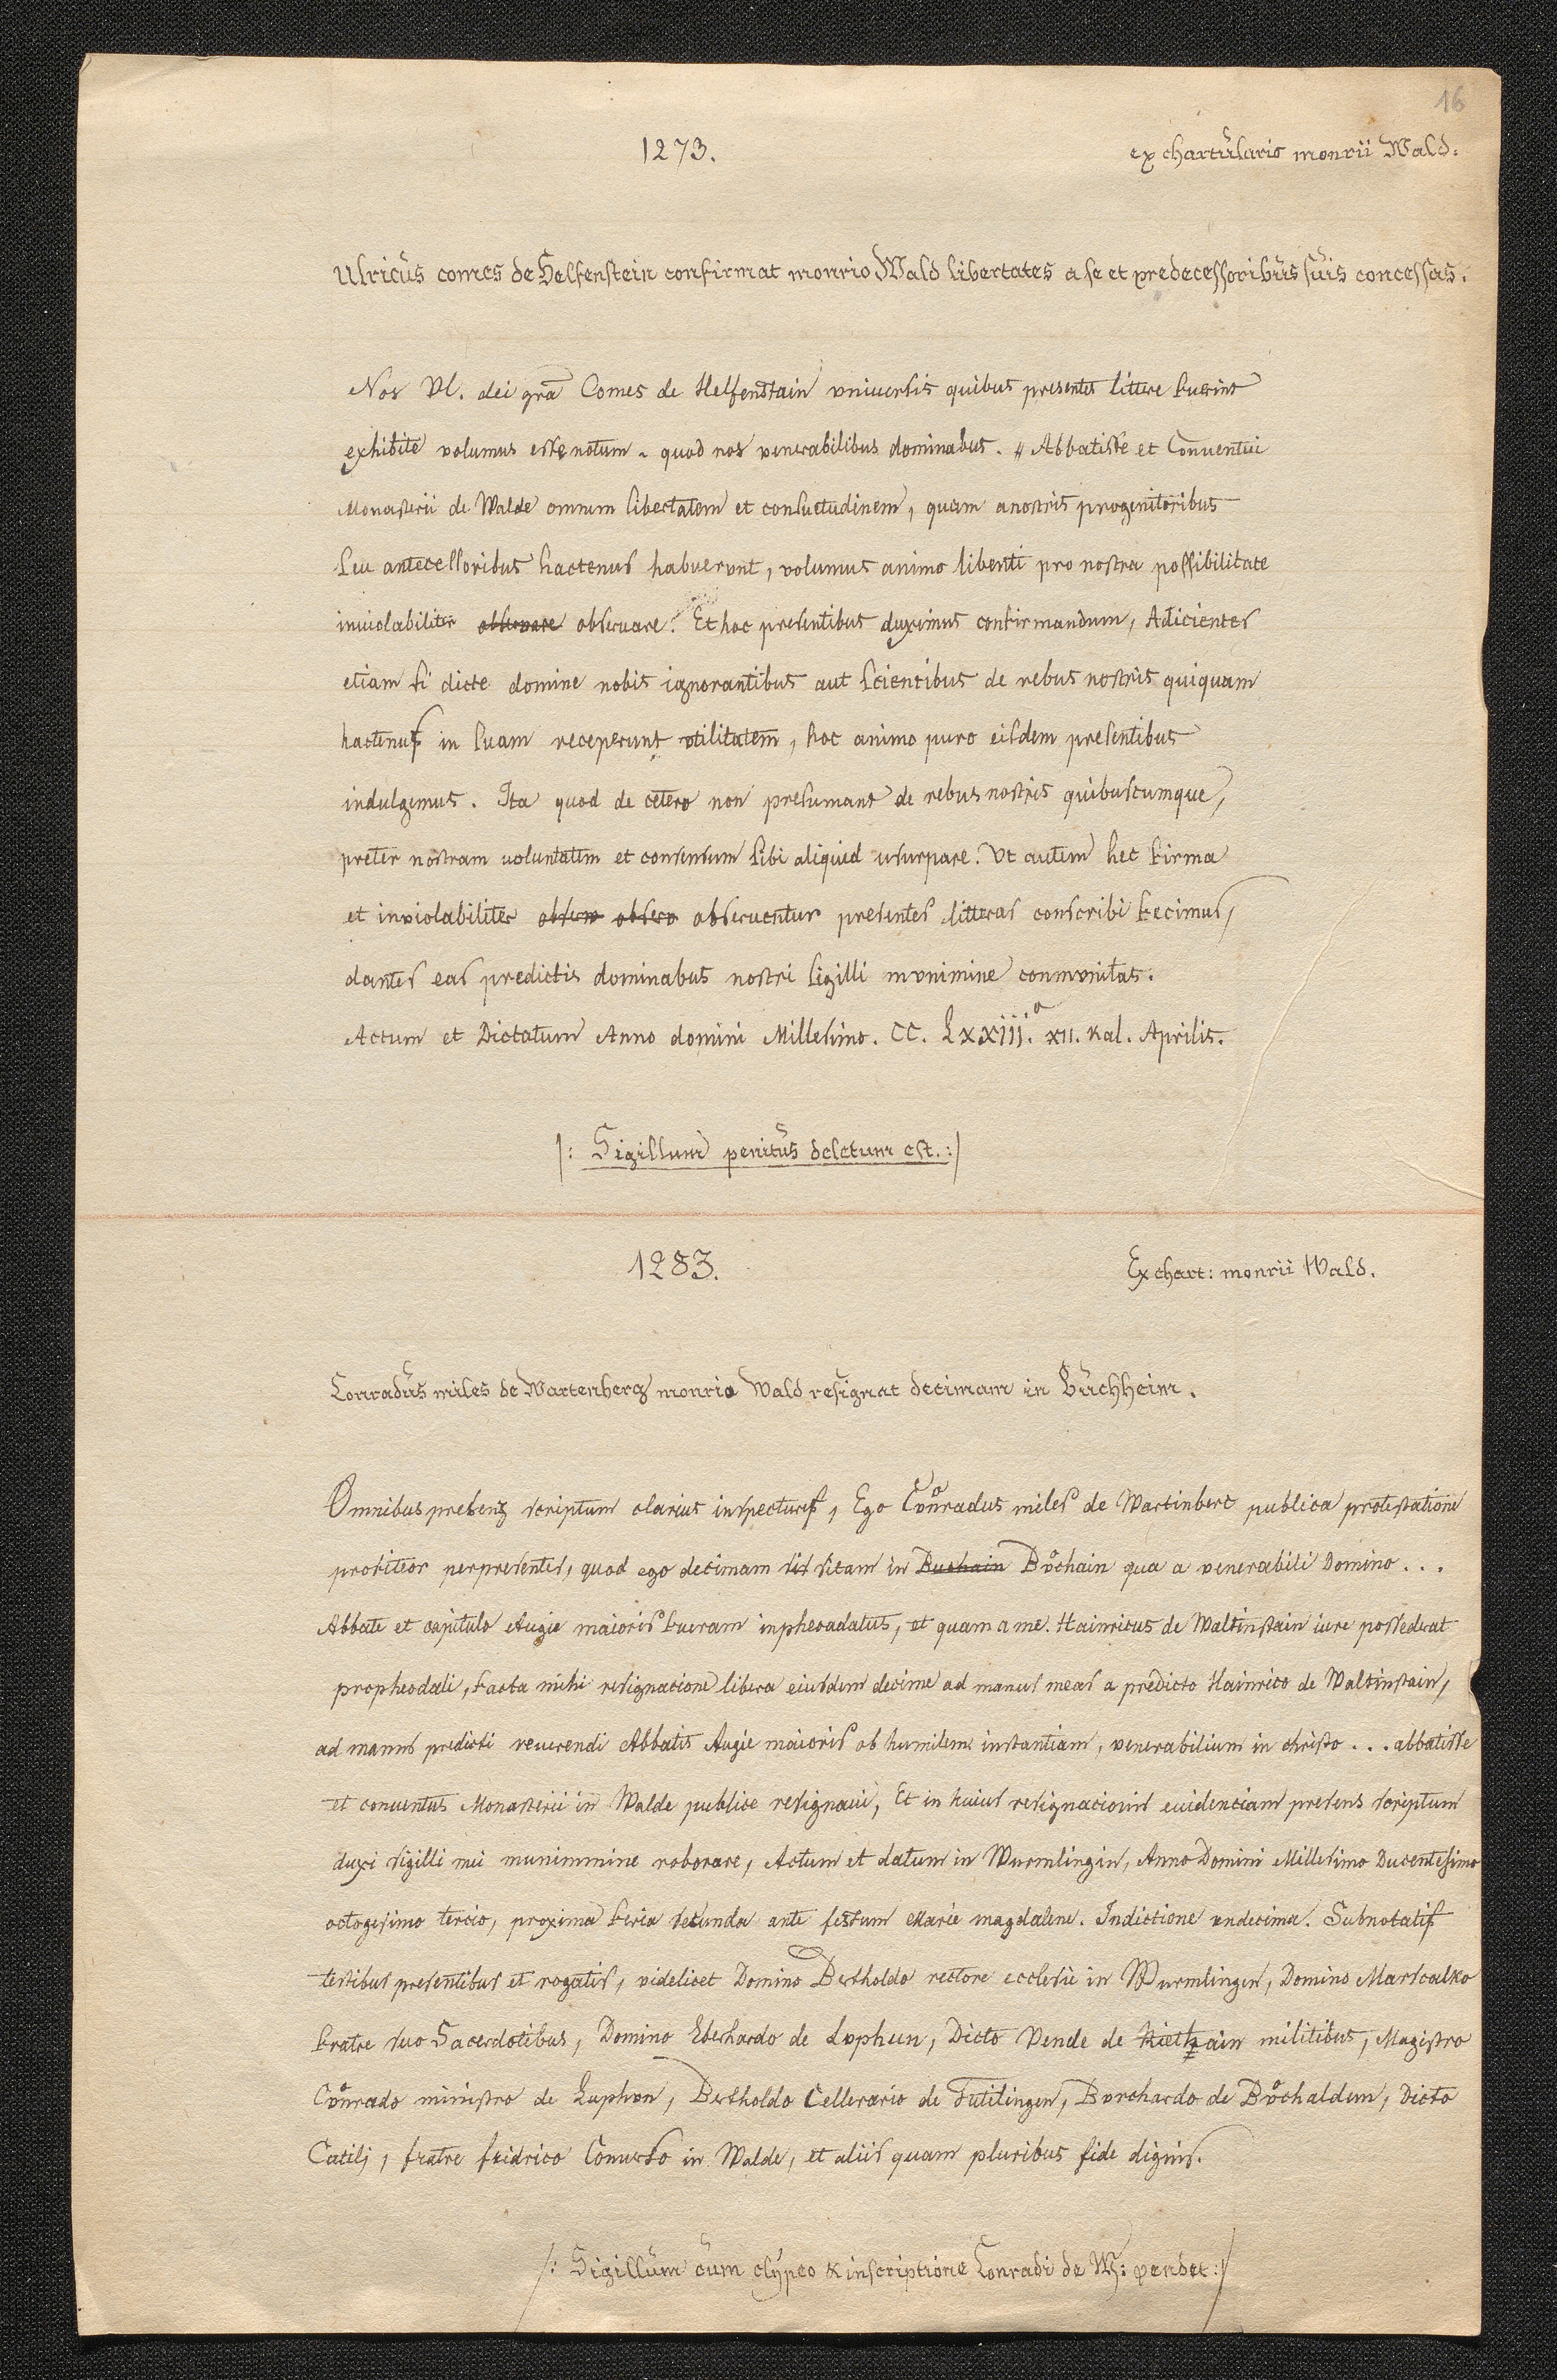 16
1273.
ex chartulario monrii Wald.
Ulricus comes de Helfenstein confirmat monrio Wald libertates a se et predecessoribus suis concessas.
Nos Vl. dei gra Comes de Helfenstain vniuersis quibus presentes littere fuerint
exhibite volumus esse notum. quod nos venerabilibus dominabus. Abbatisse et Conuentui
Monasterii de Walde omnem libertatem et consuetudinem, quam a nostris progenitoribus
seu antecessoribus hactenus habuerunt, volumus animo libenti pro nostra possibilitate
inuiolabiliter obseruare obseruare. Et hoc presentibus duximus confirmandum, Adicientes
etiam si dicte domine nobis ignorantibus aut scientibus de rebus nostris quiquam
hactenus in suam receperunt vtilitatem, hoc animo puro eisdem presentibus
indulgemus. Ita quod de cetero non presumant de rebus nostris quibuscumque,
preter nostram uoluntatem et consensum sibi aliquid usurpare. Vt autem hec firma
et inviolabiliter obseruentur presentes litteras conscribi fecimus,
dantes eas predictis dominabus nostri sigilli mvnimine conmvnitas.
Actum et Dictatum Anno domini Millesimo. CC. Lxxiii.o xii. Kal. Aprilis.
/: Sigillum penitus deletum est. :/
1283.
Ex chart: monrii Wald.
Conradus miles de Wartenberg monrio Wald resignat decimam in Buchheim.
Omnibus presens scriptum clarius inspecturis, Ego Cůnradus miles de Wartinberc publica protestatione
profiteor per presentes, quod ego decimam sitam in Buchain Bůchain qua a venerabili Domino...
Abbate et capitulo Augie maioris fueram inpheodatus, et quam a me. Hainricus de Waltinstain iure possederat
propheodali, facta mihi resignacione libera eiusdem decime ad manus meas a predicto Hainrico de Waltinstain,
ad manus predicti reuerendi Abbatis Augie maioris ob humilem instantiam, venerabilium in christo... abbatisse
et conuentus Monasterii in Walde publice resignaui, Et in huius resignacionis euidenciam presens scriptum
duxi sigilli mei munimmine roborare, Actum et datum in Wurmlingin, Anno Domini Millesimo Ducentesimo
octogesimo tercio, proxima feria secunda ante festum Marie magdalene. Indictione vndecima. Subnotatis
testibus presentibus et rogatis, videlicet Domino Bertholdo rectore ecclesie in Wurmlingen, Domino Marscalko
fratre suo Sacerdotibus, Domino Eberhardo de Lvphun, Dicto Vende de militibus, Magistro
Cůnrado ministro de Luphvn, Bertholdo Cellerario de Tutilingen, Bvrchardo de Bůchaldun, Dicto
Catili, fratre fridrico Conuerso in Walde, et aliis quam pluribus fide dignis.
/: Sigillum cum clypeo & inscriptione Conradi de W: pendet :/